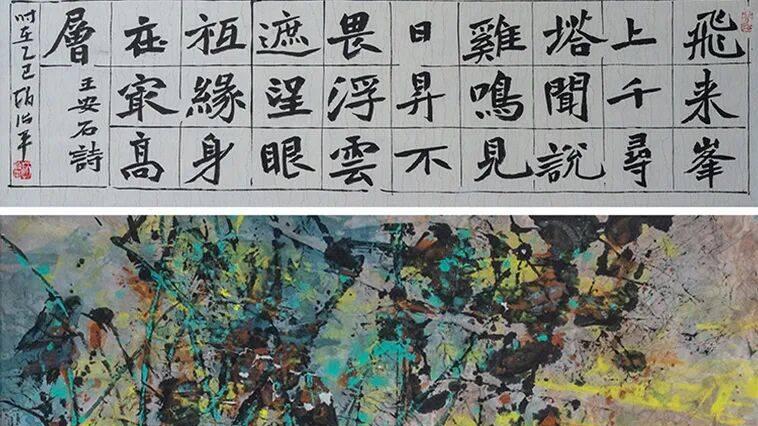 飛来峯
上千尋
塔聞說
雞鳴見
日昇不
畏浮雲
遮望眼
祇緣身
在最高
層
王安石詩
时在乙巳